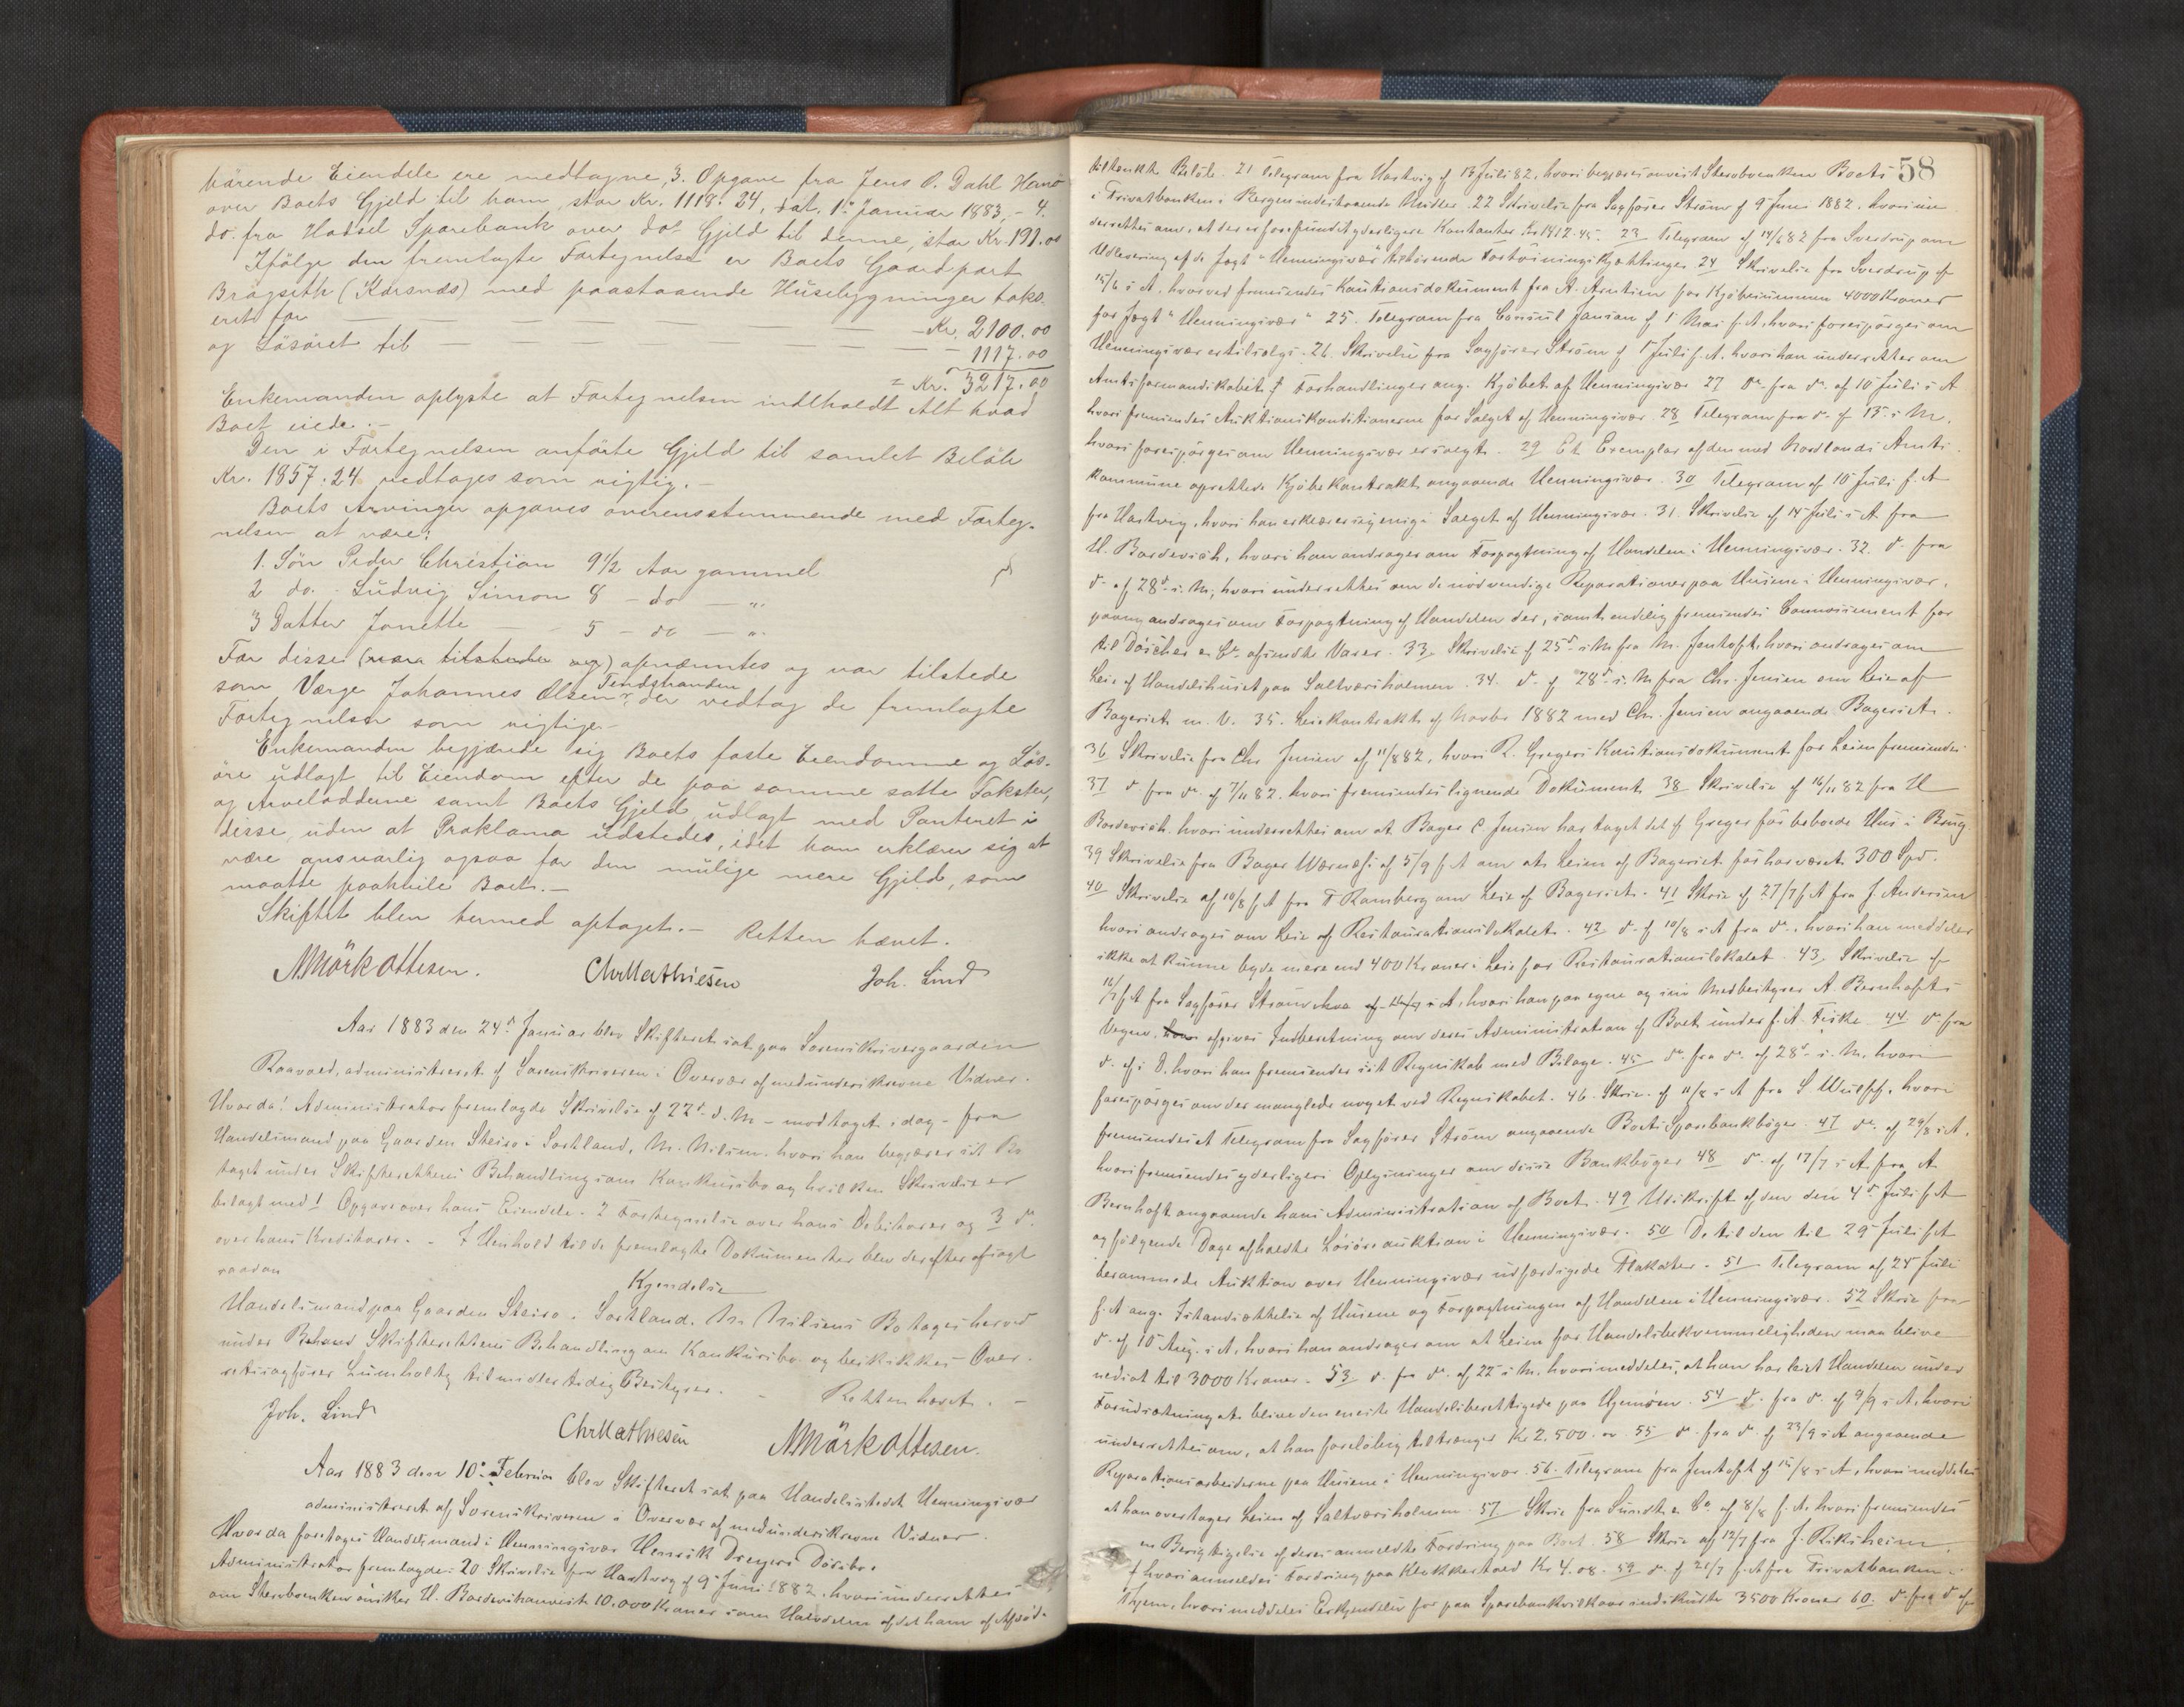 hörende Eiendele ere medtagne, 3. Opgave fra Jens P. Dahl Hanø
over Boets Gjeld til ham, stor Kr. 1118.24, dat. 1ste Januar 1883, - 4.
do. fra Hadsel Sparebank over do. Gjeld til denne, stor Kr. 191.00
Ifölge den fremlagte Fortegnelse er Boets Gaardpart
Brägseth (Karsnæs) med paastaaende Husebygninger takse-
eret for — — — — Kr. 2100.00
og Lösöret til — — — — 1117.00
= Kr. 3217.00
Enkemanden oplyste at Fortegnelsen indeholdt Alt hvad
Boet eiede.-
Den i Fortegnelsen anförte Gjeld til samlet Belöb
Kr. 1857.24 vedtages som rigtig.-
Boets Arvinger opgaves overensstemmende med Forteg-
nelsen at være:
1. Sön Peder Christian 9½ Aar gammel
2 do. - Ludvig Simon 8 - do - "
3 Datter Jonette - 5 - do - "
For disse (være tilstede og) opnævntes og var tilstede
som Værge Johannes Olsen Tendstranden, der vedtog de fremlagte
Fortegnelser som rigtige.-
Enkemanden begjærede sig Boets faste Eiendomme og Lös-
öre udlagt til Eiendom efter de paa samme satte Takster,
og Arvelodderne samt Boets Gjeld udlagt med Panteret i
disse, uden at Proklama udstedes, idet han erklærer sig at
være ansvarlig ogsaa for den mulige mere Gjeld, som
maatte paahvile Boet.-
Skiftet blev hermed optaget.- Retten hævet.
NMörk Ottesen. Chr Mathiesen Joh. Lind
Aar 1883 den 24de Januar blev Skifteret sat paa Sorenskrivergaarden
Raavoed, administreret af Sorenskriveren i Overvær af medunderskrevne Vidner.
Hvorda: Administrator fremlagde Skrivelse af 22de d. M - modtaget idag - fra
Handelsmand paa Gaarden Steiro i Sortland, M. Nilsen, hvori han begjærer sit Bo
taget under Skifterettens Behandling som Konkursbo og hvilken Skrivelse er
bilagt med 1 Opgave over hans Eiendele. 2 Fortegnelse over hans Debitorer og 3 do.
over hans Kreditorer. - I Henhold til de fremlagte Dokumenter blev derefter afsagt
saadan
Kjendelse
Handelsmand paa Gaarden Steiro i Sortland, M. Nilsens Bo tages herved
under Behand Skifterettens Behandling som Konkursbo og beskikkes Over-
retssagförer Lumholtz til midlertidig Bestyrer. - Retten hævet. -
Joh. Lind Chr Mathiesen NMörk Ottesen.
Aar 1883 den 10de Februar blev Skifteret sat paa Handelsstedet Henningsvær
administreret af Sorenskriveren i Overvær af medunderskrevne Vidner.
Hvorda foretoges Handelsmand i Henningsvær Henrik Dreyers Dödsbo.
Administrator fremlagde: 20 Skrivelse fra Hartvig af 9de Juni 1882, hvori underrettes
om Sterboenken önsker H. Bordevich anvist 10.000 Kroner som Halvdelen af det ham af Afdöd-
58
tiltænkte Belöb. 21 Telegram fra Hartvig af 13 Juli 82, hvori begjæres anvist Sterboenken Boets
i Privatbanken i Bergen indestaaende Midler. 22 Skrivelse fra Sagförer Ström af 9de Juni 1882, hvori un-
derrettes om, at der er forefundet yderligere Kontanter Kr 1412.45. 23 Telegram af 14/6 82 fra Sverdrup om
Udlevering af de Jægt "Henningsvær" tilhörende Fortöiningskjættinger. 24 Skrivelse fra Sverdrup af
15/6 s. A. hvorved fremsendes Kautionsdokument fra A. Arntsen for Kjöbesummen 4000 Kroner
for Jægt "Henningsvær" 25. Telegram fra Consul Jansen af 1 Mai f. A. hvori forespörges om
Henningsvær er tilsalgs. 26. Skrivelse fra Sagförer Ström af 1 Juli f. A. hvori han underretter om
Amtsformandskabets Forhandlinger ang. Kjöbet af Henningsvær 27 do. fra do. af 10 Juli s. A
hvori fremsendes Auktionskonditionerne for Salget af Henningsvær. 28 Telegram fra do. af 13 s. M.
hvori forespörges om Henningsvær er solgt. 29 Et Exemplar af den med Nordlands Amts
kommune oprettede Kjöbekontrakt angaaende Henningsvær. 30 Telegram af 10 Juli f. A
fra Hartvig, hvori han erklærer sig enig i Salget af Henningsvær. 31. Skrivelse af 14 Juli s. A fra
H. Bordevich, hvori han andrager om Forpagtning af Handelen i Henningsvær. 32. do. fra
do. af 28de s. M, hvori underrettes om de nödvendige Reparationer paa Husene i Henningsvær,
paany andrages om Forpagtning af Handelen der, samt endelig fremsendes Connoissement for
til Döscher & Co. afsendte Varer. 33, Skrivelse af 25de s. M fra M. Jentoft, hvori andrages om
Leie af Handelshuset paa Saltværsholmen. 34. do. af 28de s. M fra Chr. Jensen om Leie af
Bageriet m. V. 35. Leiekontrakt af Novbr 1882 med Chr. Jensen angaaende Bageriet.
36 Skrivelse fra Chr Jensen af 11/8 82, hvori R. Gregers Kautionsdokument for Leien fremsendes
37 do fra do. af 7/11 82, hvori fremsendes lignende Dokument 38 Skrivelse af 16/11 82 fra H
Bordevich hvori underrettes om at Bager C Jensen har taget det af Greger för beboede Hus i Brug
39 Skrivelse fra Bager Wærnæs af 5/9 f. A om at Leien af Bageriet för har været 300 Spd.
40 Skrivelse af 10/8 f. A fra T Ramberg om Leie af Bageriet. 41 Skriv af 27/7 f A fra J. Andersen
hvori andrages om Leie af Restaurationslokalet. 42 do. af 10/8 s. A fra do., hvori han meddeler
ikke at kunne byde mere end 400 Kroner i Leie for Restaurationslokalet. 43, Skrivelse af
16/7 f A fra Sagförer Ström, hvori han paa egne og sin Medbestyrer A. Bernhofts
Vegne afgiver Indberetning om deres Administration af Boet under f. A. Fiske 44 do fra
do. af s. D. hvori han fremsender sit Regnskab med Bilage. 45 do. fra do. af 28de s. M. hvori
forespörges om der manglede noget ved Regnskabet. 46. Skriv. af 11/8 s. A fra S Wulff, hvori
fremsendes et Telegram fra Sagförer Ström angaaende Boets Sparebankböger. 47 do. af 29/8 s. A,
hvori fremsendes yderligere Oplysninger om disse Bankböger 48 do. af 17/7 s. A fra A
Bernhoft angaaende hans Administration af Boet. 49 Udskrift af den den 4de Juli f. A
og fölgende Dage afholdte Lösöreauktion i Henningsvær. 50 De til den til 29 Juli f. A
berammede Auktion over Henningsvær udfærdigede Plakater. 51 Telegram af 24 Juli
f. A ang. Istandsættelse af Husene og Forpagtningen af Handelen i Henningsvær. 52 Skriv fra
do. af 10 Aug. s. A, hvori han andrager om at Leien for Handelsbekvemmeligheden maa blive
nedsat til 3000 Kroner. 53 do. fra do. af 22 s. M. hvori meddeles, at han har leiet Handelen under
Forudsætning at blive den eneste Handelsberettigede paa Hjemöen. 54 do. fra do. af 9/9 s. A, hvori
underrettes om, at han foreløbig tiltrænger Kr 2.500.00 55 do. fra do. af 23/9 s. A angaaende
Reparationsarbeiderne paa Husene i Henningsvær. 56. Telegram fra Jentoft af 14/8 s. A, hvori meddeles
at han overtager Leien af Saltværsholmen. 57 Skriv fra Sundt & Co. af 8/8 f. A. hvori fremsendes
en Berigtigelse af deres anmeldte Fordring paa Boet. 58 Skriv af 12/7 fra J. Rikshein,
hvori anmeldes Fordring paa Kr 4.08. 59 do. af 21/7 f. A fra Privatbanken i
Thjem, hvori meddeles Erkjendelse for paa Sparebankvilkaar indskudte 3500 Kroner 60. do. fra do af